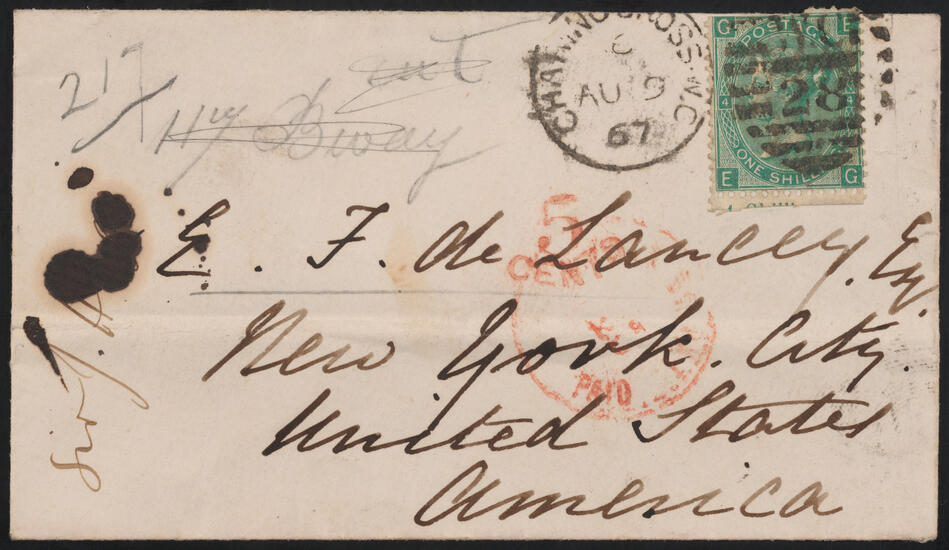 217
117 Bway
CHARING CROSS·W.C
C
AU 9
67
G E
POSTAGE
4 4
28
ONE SHILL
E G
5
CENTS
PAID
E. F. de Lancey. Esq.
New York. City.
United States
America